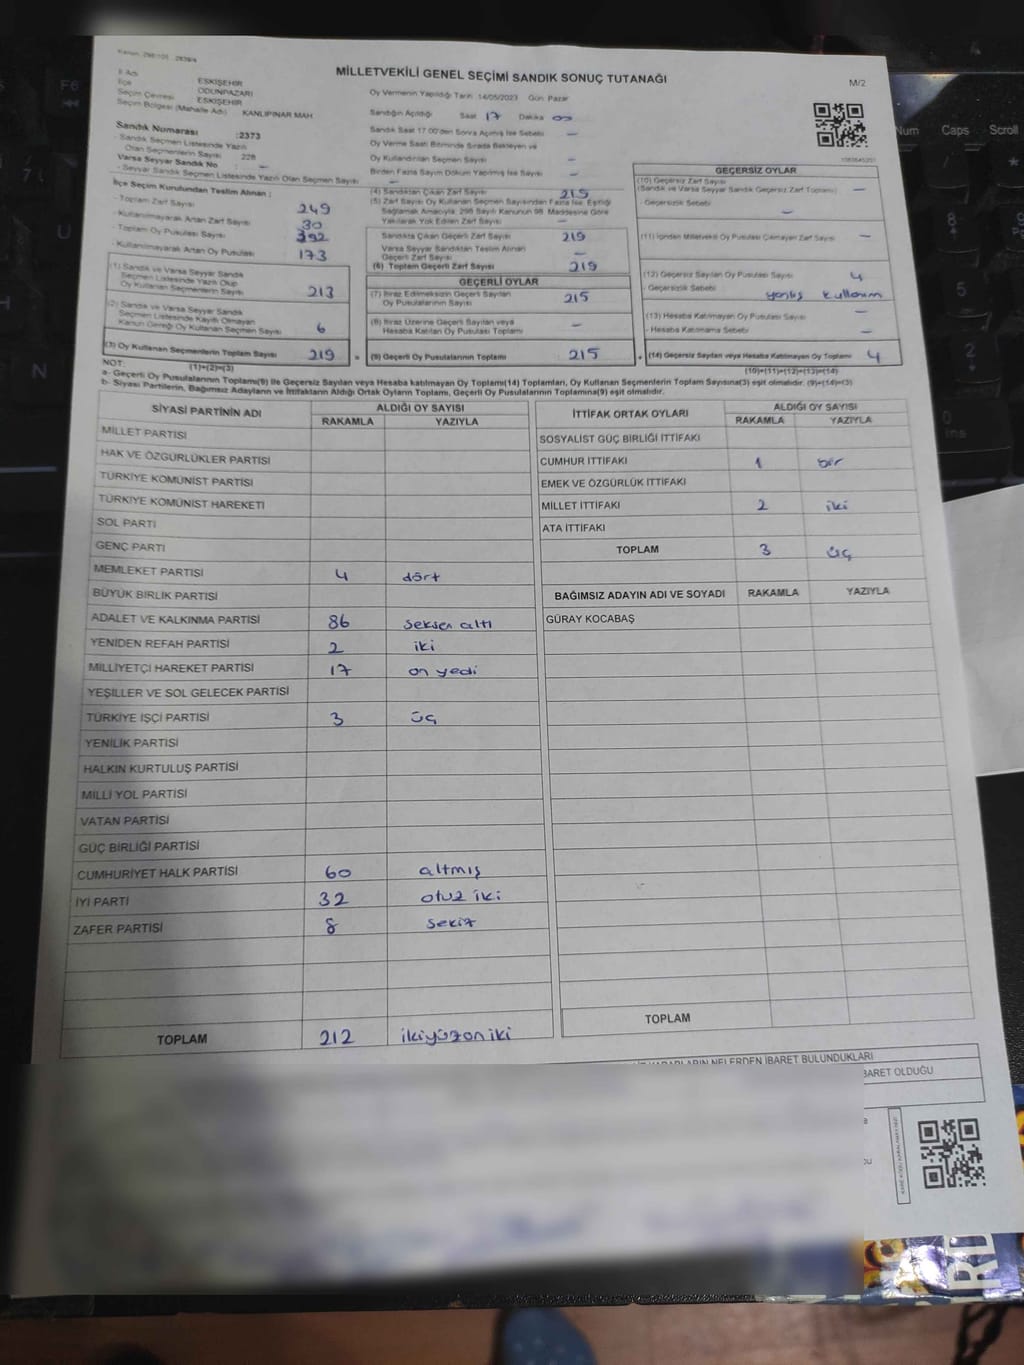 MİLLETVEKİLİ GENEL SEÇİMİ SANDIK SONUÇ TUTANAĞI
M/2
İl Adı ESKİŞEHİR
İlçe ODUNPAZARI
Seçim Çevresi ESKİŞEHİR
Seçim Bölgesi (Mahalle Adı) KANLIPINAR MAH
Sandık Numarası :2373
- Sandık Seçmen Listesinde Yazılı
Olan Seçmenlerin Sayısı 228
Varsa Seyyar Sandık No : –
- Seyyar Sandık Seçmen Listesinde Yazılı Olan Seçmen Sayısı –
İlçe Seçim Kurulundan Teslim Alınan ;
- Toplam Zarf Sayısı 249
- Kullanılmayarak Artan Zarf Sayısı 30
- Toplam Oy Pusulası Sayısı 392
- Kullanılmayarak Artan Oy Pusulası 173
(1) Sandık ve Varsa Seyyar Sandık
Seçmen Listesinde Yazılı Olup
Oy Kullanan Seçmenlerin Sayısı 213
(2) Sandık ve Varsa Seyyar Sandık
Seçmen Listesinde Kayıtlı Olmayan
Kanun Gereği Oy Kullanan Seçmen Sayısı 6
(3) Oy Kullanan Seçmenlerin Toplam Sayısı 219 =
(1)+(2)=(3)
Oy Vermenin Yapıldığı Tarih 14/05/2023 Gün Pazar
Sandığın Açıldığı Saat 17 Dakika 00
Sandık Saat 17.00'den Sonra Açılmış İse Sebebi –
Oy Verme Saati Bitiminde Sırada Bekleyen ve
Oy Kullandırılan Seçmen Sayısı –
Birden Fazla Sayım Döküm Yapılmış İse Sayısı –
(4) Sandıktan Çıkan Zarf Sayısı 219
(5) Zarf Sayısı Oy Kullanan Seçmen Sayısından Fazla İse, Eşitliği
Sağlamak Amacıyla; 298 Sayılı Kanunun 98. Maddesine Göre
Yakılarak Yok Edilen Zarf Sayısı –
Sandıkta Çıkan Geçerli Zarf Sayısı 219
Varsa Seyyar Sandıktan Teslim Alınan
Geçerli Zarf Sayısı –
(6) Toplam Geçerli Zarf Sayısı 219
GEÇERLİ OYLAR
(7) İtiraz Edilmeksizin Geçerli Sayılan
Oy Pusulalarının Sayısı 215
(8) İtiraz Üzerine Geçerli Sayılan veya
Hesaba Katılan Oy Pusulası Toplamı –
(9) Geçerli Oy Pusulalarının Toplamı 215 +
GEÇERSİZ OYLAR
(10) Geçersiz Zarf Sayısı
(Sandık ve Varsa Seyyar Sandık Geçersiz Zarf Toplamı) –
- Geçersizlik Sebebi –
(11) İçinden Milletvekili Oy Pusulası Çıkmayan Zarf Sayısı –
(12) Geçersiz Sayılan Oy Pusulası Sayısı 4
- Geçersizlik Sebebi yanlış kullanım
(13) Hesaba Katılmayan Oy Pusulası Sayısı –
- Hesaba Katılmama Sebebi –
(14) Geçersiz Sayılan veya Hesaba Katılmayan Oy Toplamı 4
(10)+(11)+(12)+(13)=(14)
NOT:
a- Geçerli Oy Pusulalarının Toplamı(9) ile Geçersiz Sayılan veya Hesaba katılmayan Oy Toplamı(14) Toplamları, Oy Kullanan Seçmenlerin Toplam Sayısına(3) eşit olmalıdır. (9)+(14)=(3)
b- Siyasi Partilerin, Bağımsız Adayların ve İttifakların Aldığı Ortak Oyların Toplamı, Geçerli Oy Pusulalarının Toplamına(9) eşit olmalıdır.
SİYASİ PARTİNİN ADI ALDIĞI OY SAYISI
RAKAMLA YAZIYLA
MİLLET PARTİSİ
HAK VE ÖZGÜRLÜKLER PARTİSİ
TÜRKİYE KOMÜNİST PARTİSİ
TÜRKİYE KOMÜNİST HAREKETİ
SOL PARTİ
GENÇ PARTİ
MEMLEKET PARTİSİ 4 dört
BÜYÜK BİRLİK PARTİSİ
ADALET VE KALKINMA PARTİSİ 86 seksen altı
YENİDEN REFAH PARTİSİ 2 iki
MİLLİYETÇİ HAREKET PARTİSİ 17 on yedi
YEŞİLLER VE SOL GELECEK PARTİSİ
TÜRKİYE İŞÇİ PARTİSİ 3 üç
YENİLİK PARTİSİ
HALKIN KURTULUŞ PARTİSİ
MİLLİ YOL PARTİSİ
VATAN PARTİSİ
GÜÇ BİRLİĞİ PARTİSİ
CUMHURİYET HALK PARTİSİ 60 altmış
İYİ PARTİ 32 otuz iki
ZAFER PARTİSİ 8 sekiz
TOPLAM 212 ikiyüzoniki
İTTİFAK ORTAK OYLARI ALDIĞI OY SAYISI
RAKAMLA YAZIYLA
SOSYALİST GÜÇ BİRLİĞİ İTTİFAKI
CUMHUR İTTİFAKI 1 bir
EMEK VE ÖZGÜRLÜK İTTİFAKI
MİLLET İTTİFAKI 2 iki
ATA İTTİFAKI
TOPLAM 3 üç
BAĞIMSIZ ADAYIN ADI VE SOYADI RAKAMLA YAZIYLA
GÜRAY KOCABAŞ
TOPLAM
NELERDEN İBARET BULUNDUKLARI
İBARET OLDUĞU
F6
Num
Caps
Scroll